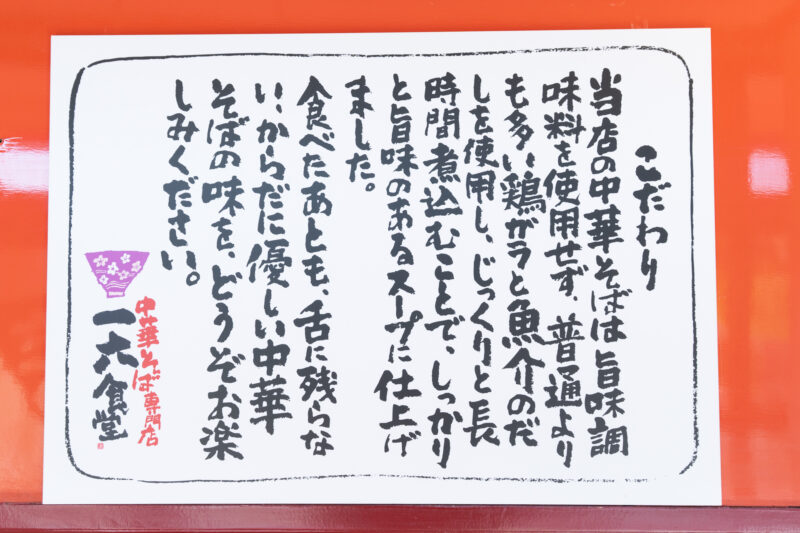 こだわり
当店の中華そばは旨味調
味料を使用せず、普通より
も多い鶏ガラと魚介のだ
しを使用し、じっくりと長
時間煮込むことで、しっかり
と旨味のあるスープに仕上げ
ました。
食べたあとも、舌に残らな
い、からだに優しい中華
そばの味を、どうぞお楽
しみください。
中華そば専門店
一六食堂